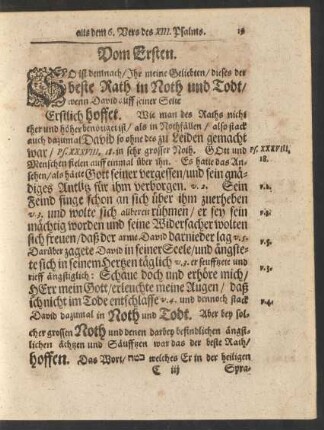 aus dem 6. Vers des XIII. Psalms. 19
Vom Ersten.
SO ist demnach / Ihr meine Geliebten / dieses der
beste Rath in Noth und Todt /
wenn David auff seiner Seite
Erstlich hoffet. Wie man des Raths nicht
eher und höher benötiget ist / als in Nothfällen / also stack
auch dazumal David so ohne des zu Leiden gemacht
war / Ps. XXXVIII, 18. in sehr grosser Noth. Gott und
Ps. XXXVIII, 18.
Menschen fielen auff einmal über ihn. Es hatte das An-
sehen / als hätte Gott seiner vergessen / und sein gnä-
diges Antlitz für ihm verborgen. v. 2. Sein
v. 2.
Feind singe schon an sich über ihm zuerheben
v. 3. und wolte sich allbereit rühmen / er sey sein
v. 3.
mächtig worden und seine Widersacher wolten
sich freuen / daß der arme David darnieder lag v. 5.
v. 5.
Darüber zagete David in seiner Seele / und ängste-
te sich in seinem Hertzen täglich v. 3. er seuffzete und
v. 3.
rieff ängstiglich: Schaue doch und erhöre mich /
HErr mein Gott / erleuchte meine Augen / daß
ich nicht im Tode entschlaffe v. 4. und dennoch stack
v. 4.
David dazumal in Noth und Todt. Aber bey sol-
cher grossen Noth und denen darbey befindlichen ängst-
lichen ächtzen und Säufftzen war das der beste Rath /
hoffen. Das Wort / בטח welches Er in der heiligen
C iij Spra-